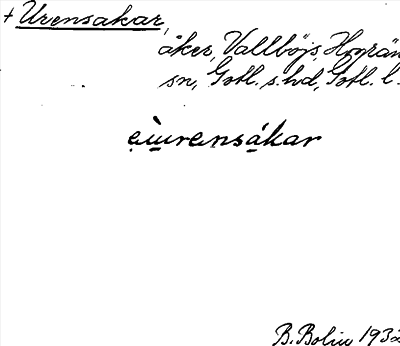 + Urensakar,
åker, Vallböjs, Hogrän
sn, Gotl. s. hd, Gotl. l.
eùrensákar
B. Bolin 1932